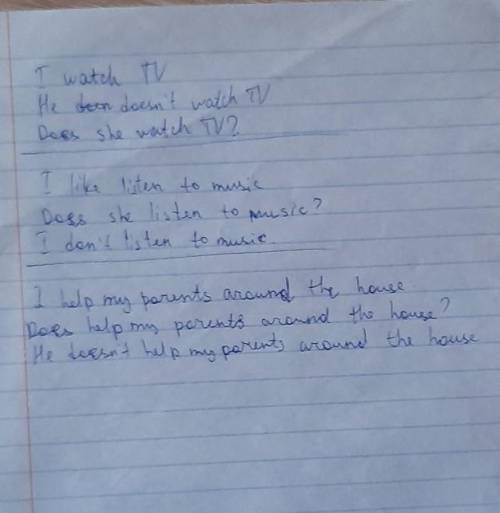 I watch TV
He doesn't watch TV
Does she watch TV?
I like listen to music
Does she listen to music?
I don't listen to music.
I help my parents around the house
Does help my parents around the house?
He doesn't help my parents around the house